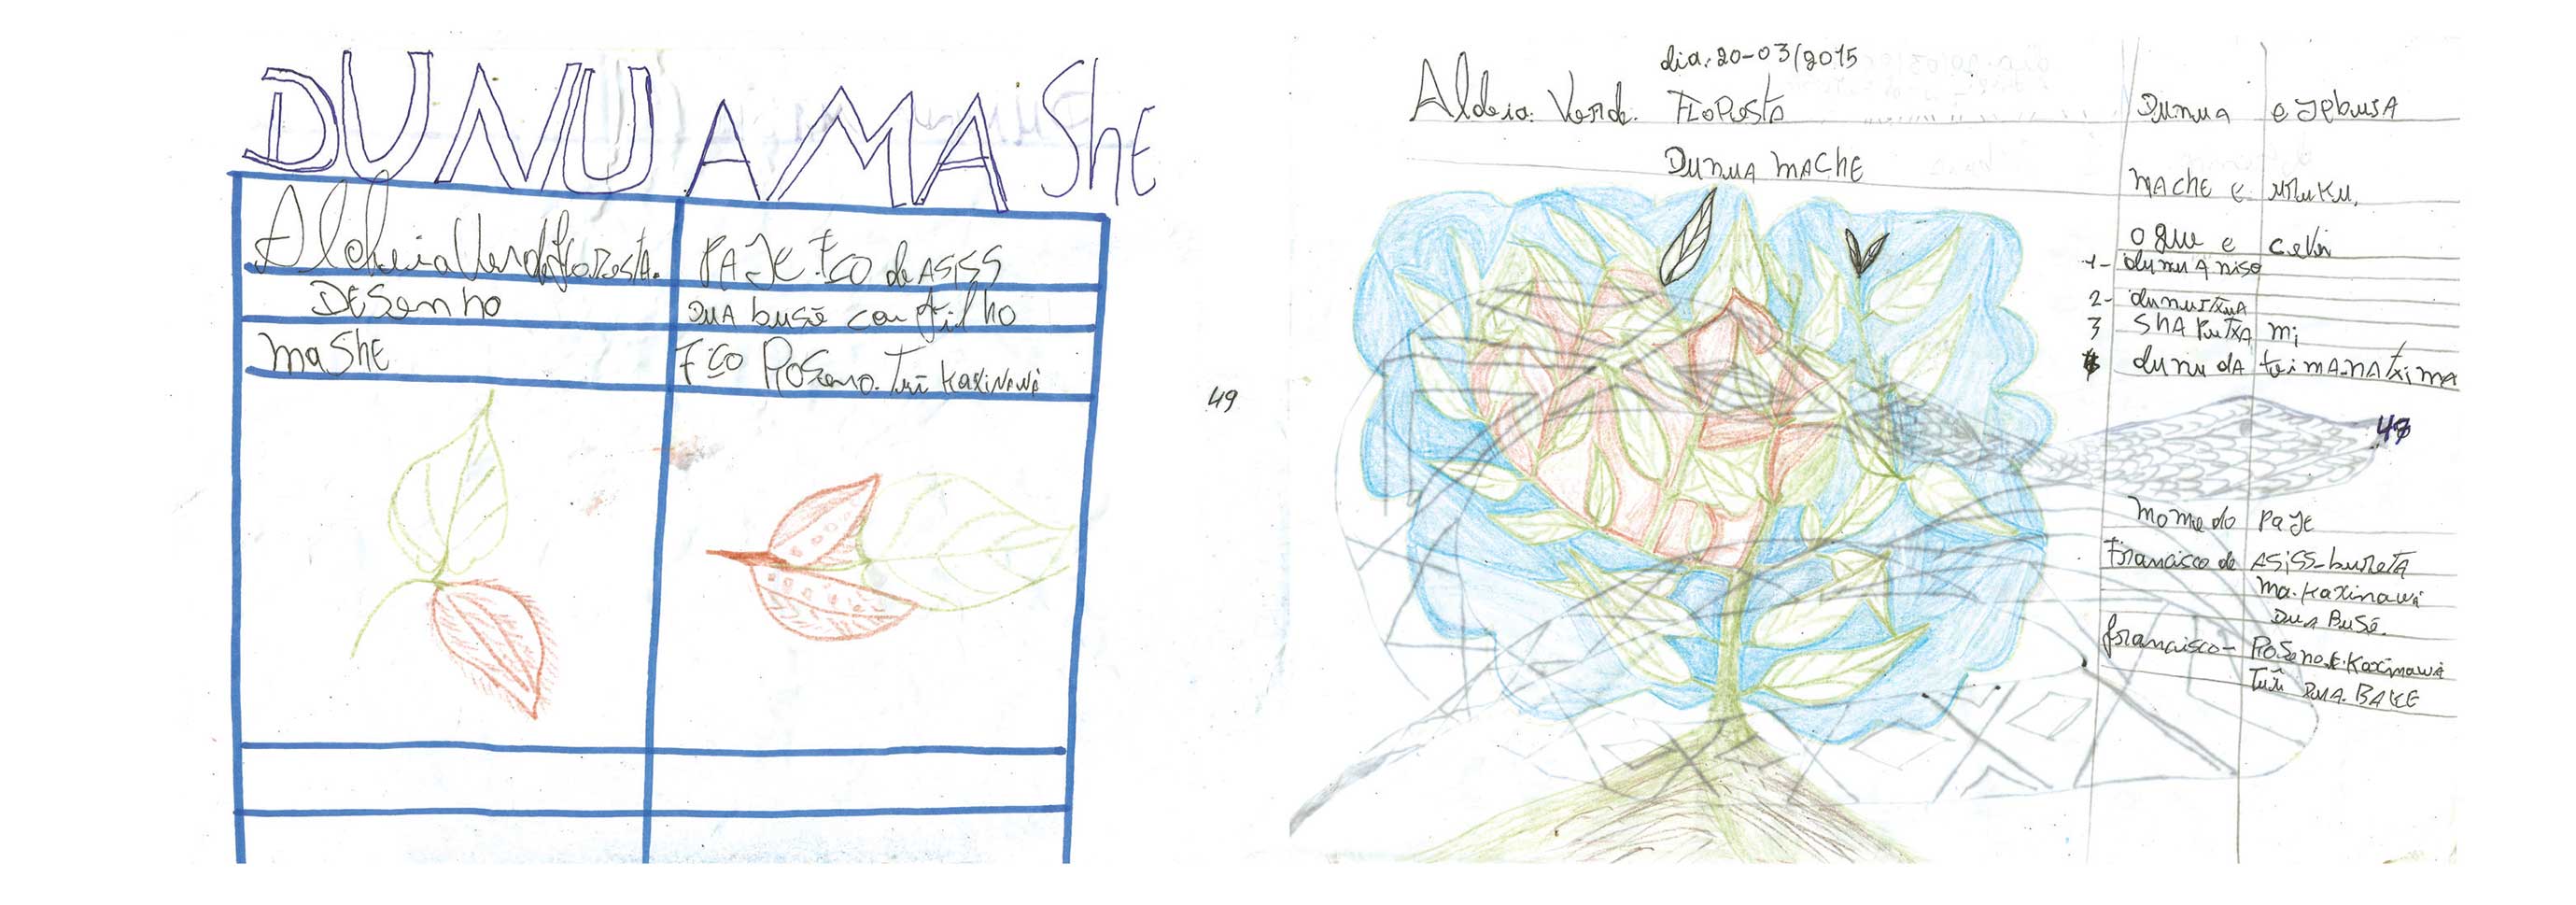 DUNU A MAShE
Aldeia Verde floresta.
PAJE Fco de ASiSS
DESenho
DUA busē con filho
maShE
Fco ROSeno. Tuī KaxiNawá
49
dia: 20-03/2015
Aldeia. Verde. FLoResta
DUNUA MAChE
DUNUA e
MAChE e uRuKu,
o que e
1- dunu A niso
2-
3 ShA PuTxA mi
dunu dA
nome do PaJE
Francisco de ASiSS-
ma. Kaxinawá
DUA BuSē.
francisco- RoSeno. Kaxinawá
Tuī DUA. BAKE